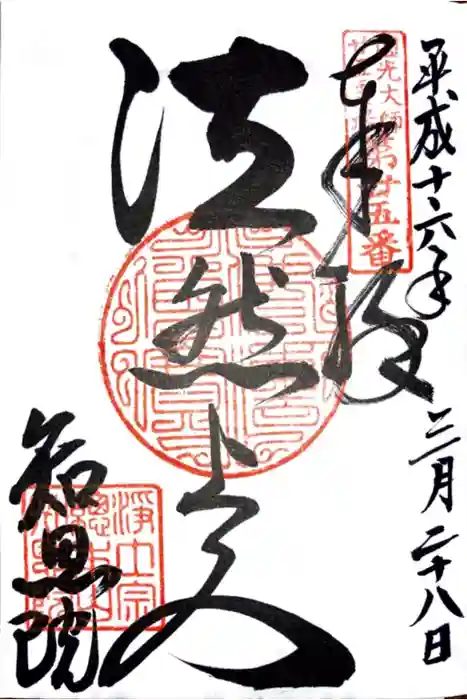 平成十六年三月二十八日
奉拝
圓光大師
第廿五番
法然上人
知恩院
淨土宗
總本山
知恩院